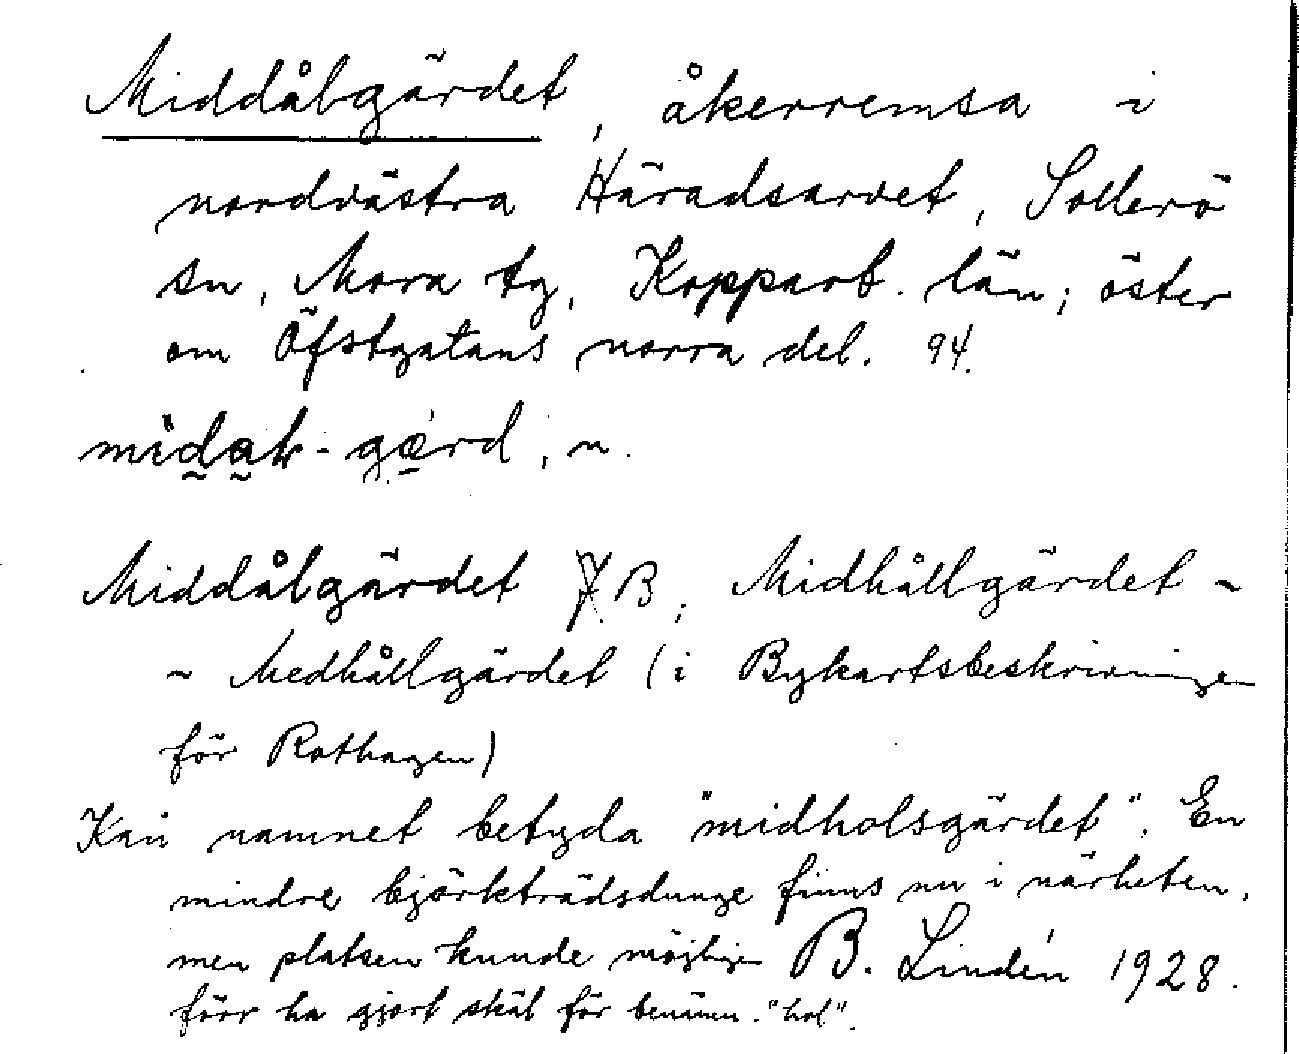 Middålgärdet, åkerremsa i
nordvästra Häradsarvet, Sollerö
sn, Mora tg, Kopparb. län; öster
om Öfstgatans norra del. 94.
-gærd, n.
Middålgärdet B; Midhållgärdet ~
~ Medhållgärdet (i Bykartsbeskrivningen
för Rothagen)
Kan namnet betyda "midholsgärdet". En
mindre björkträdsdunge finns nu i närheten,
men platsen kunde möjligen B. Lindén 1928.
förr ha gjort skäl för benämn. "hol".